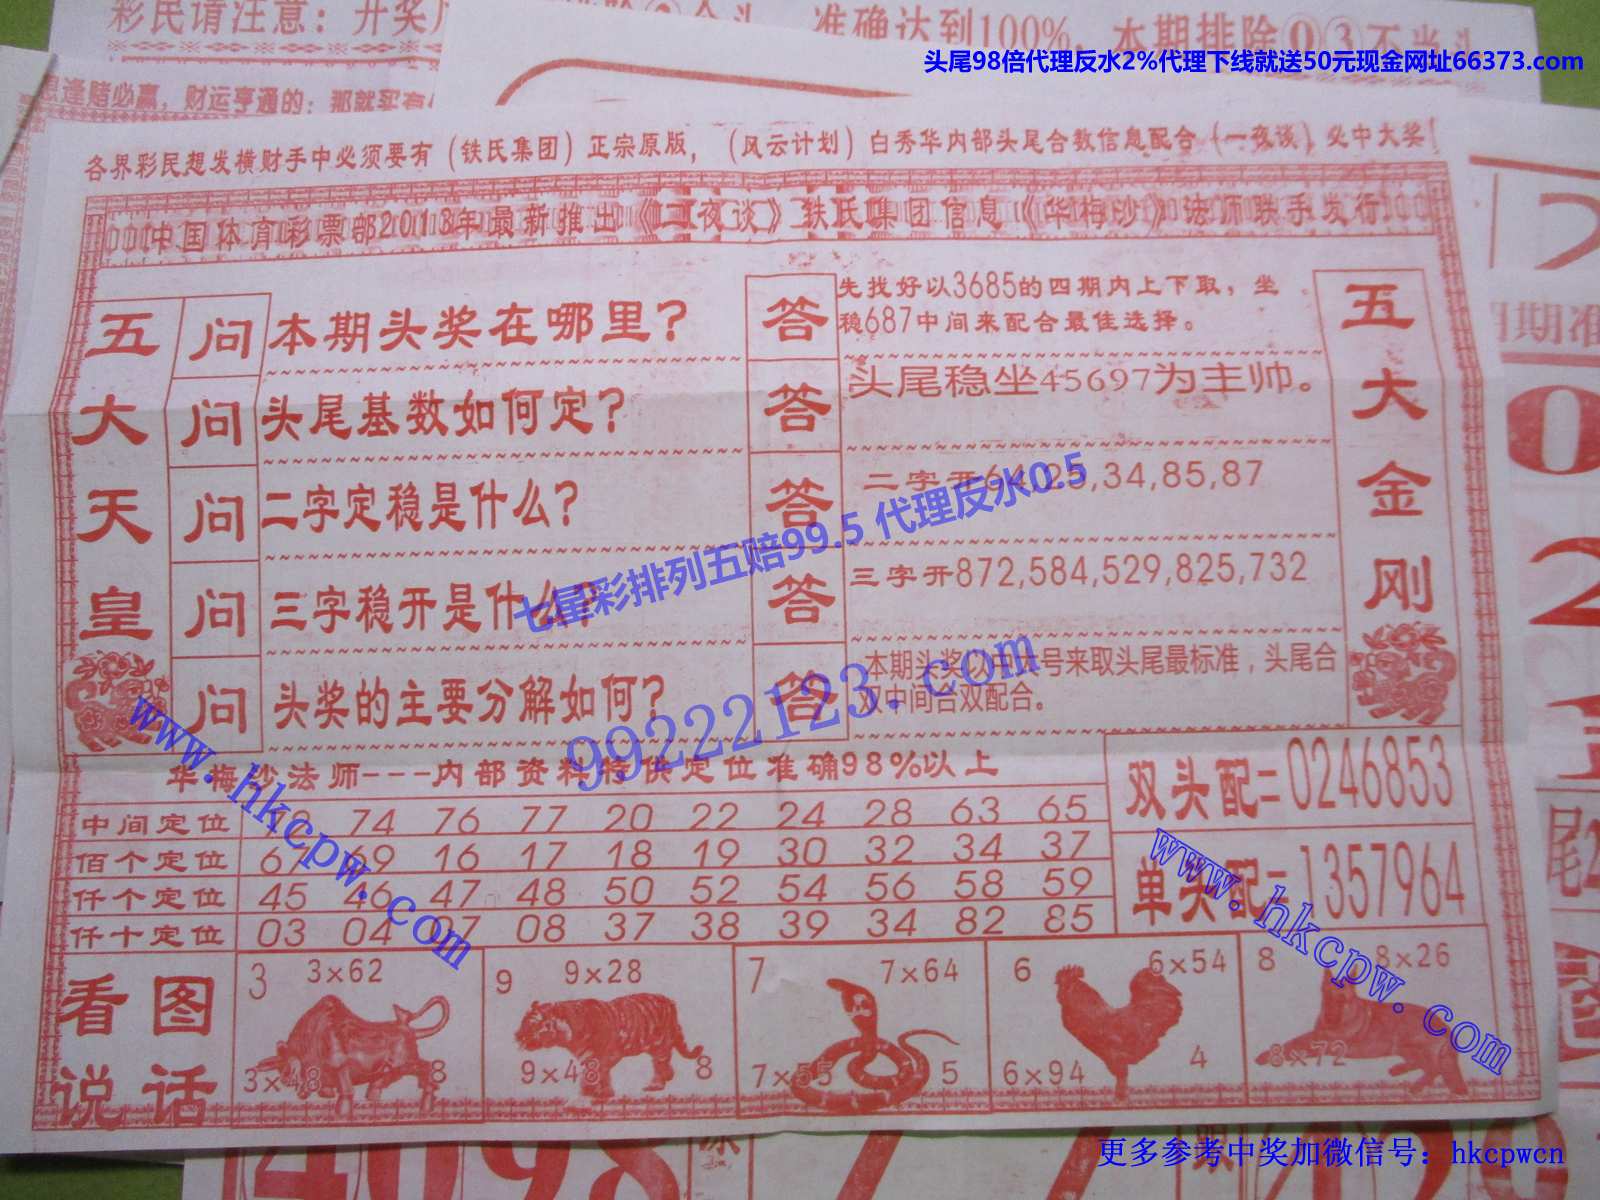 彩民请注意：开奖
准确达到100%，本期排除03不当头
头尾98倍代理反水2%代理下线就送50元现金网址66373.com
逢赌必赢，财运亨通的：那就买有
各界彩民想发横财手中必须要有（铁氏集团）正宗原版，（风云计划）白秀华内部头尾合数信息配合（一夜谈）必中大奖！
中国体育彩票部2013年最新推出《一夜谈》铁氏集团信息《华梅沙》法师联手发行
五大天皇
问 本期头奖在哪里？
答 先找好以3685的四期内上下取，坐
稳687中间来配合最佳选择。
问 头尾基数如何定？
答 头尾稳坐45697为主帅。
问 二字定稳是什么？
答 二字开64,25,34,85,87
问 三字稳开是什么？
答 三字开872,584,529,825,732
问 头奖的主要分解如何？
答 本期头奖以中大号来取头尾最标准，头尾合
双中间合双配合。
五大金刚
七星彩排列五赔99.5 代理反水0.5
99222123.com
www.hkcpw.com
华梅沙法师---内部资料特供定位准确98%以上
中间定位 74 76 77 20 22 24 28 63 65
佰个定位 67 69 16 17 18 19 30 32 34 37
仟个定位 45 46 47 48 50 52 54 56 58 59
仟十定位 03 04 07 08 37 38 39 34 82 85
双头配二0246853
单头配二1357964
www.hkcpw.com
看图
说话
3 3×62
3×48 8
9 9×28
9×48 8
7 7×64
7×55 5
6 6×54
6×94 4
8 8×26
8×72
更多参考中奖加微信号：hkcpwcn